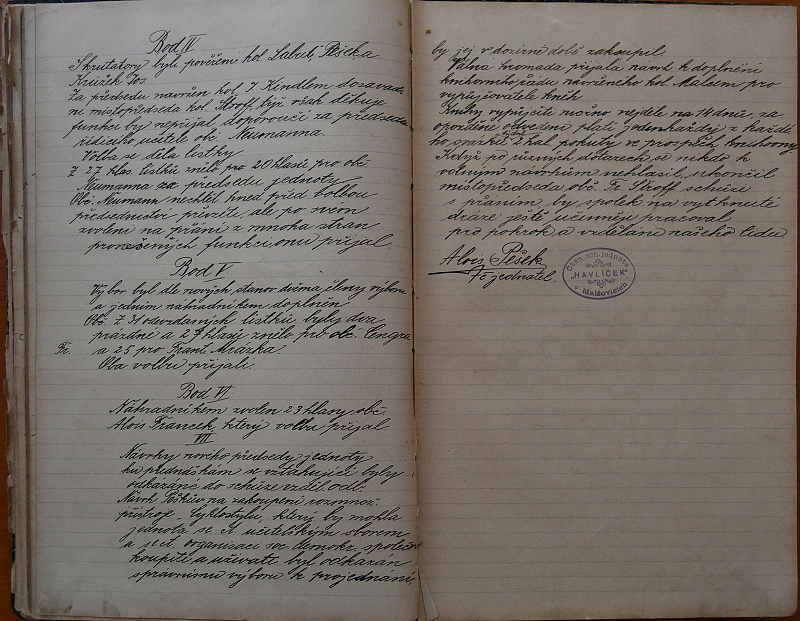 Bod IV
Skrutátory byli pověřeni kol. Labuť, Pešek a
Křížek Jos.
Za předsedu navržen kol. J. Kindlem dosavad-
ní místopředseda kol. Štroff, týž však děkuje
funkci by nepřijal, doporoučí za předsedu
řídícího učitele ob. Neumanna.
Volba se děla lístky.
Z 27 hlas. lístků znělo pro 20 hlasů pro obč.
Neumanna za předsedu jednoty.
Obč. Neumann nechtěl hned před volbou
předsednictví převzíti, ale po svém
zvolení na přání z mnoha stran
pronešených funkci onu přijal.
Bod V.
Výbor byl dle nových stanov dvěma členy výboru
a jedním náhradníkem doplněn
Obč. Z 31 odevzdaných lístků byly dva
prázdné a 27 hlasy znělo pro obč. Cengra
Fr. a 25 pro Frant. Mrázka.
Oba volbu přijali.
Bod VI
Náhradníkem zvolen 23 hlasy obč.
Alois Francek, který volbu přijal
VII
Návrhy nového předsedy jednoty
ku přednáškám se vztahující byly
odkázány do schůze vzděl. odb.
Návrh Peškův na zakoupení rozmnož.
přístroje - Cyklostylu, který by mohla
jednota se ct. učitelským sborem
a se ct. organisací soc. demokr. společně
koupiti a užívati byl odkázán
správnímu výboru k projednání
by jej v dozírné době zakoupil.
Valná hromada přijala návrh k doplnění
knihovního řádu navrženého kol. Malcem pro
vypůjčovatele kněh
Knihy vypůjčiti možno nejdéle na 14 dnů, za
opozdené odvedení platí jedenkaždý z každé
ho, 2 hal. pokuty ve prospěch knihovny.
Když po různých dotazech se nikdo k
volným návrhům nehlásil, ukončil
místopředseda obč. Fr. Štroff schůzi
s přáním, by spolek na vytknuté
dráze ještě účinněji pracoval
pro pokrok a vzdělání našeho lidu
Alois Pešek
t. jednatel.
Čten. och. jednota
"HAVLÍČEK"
v Malšovicích